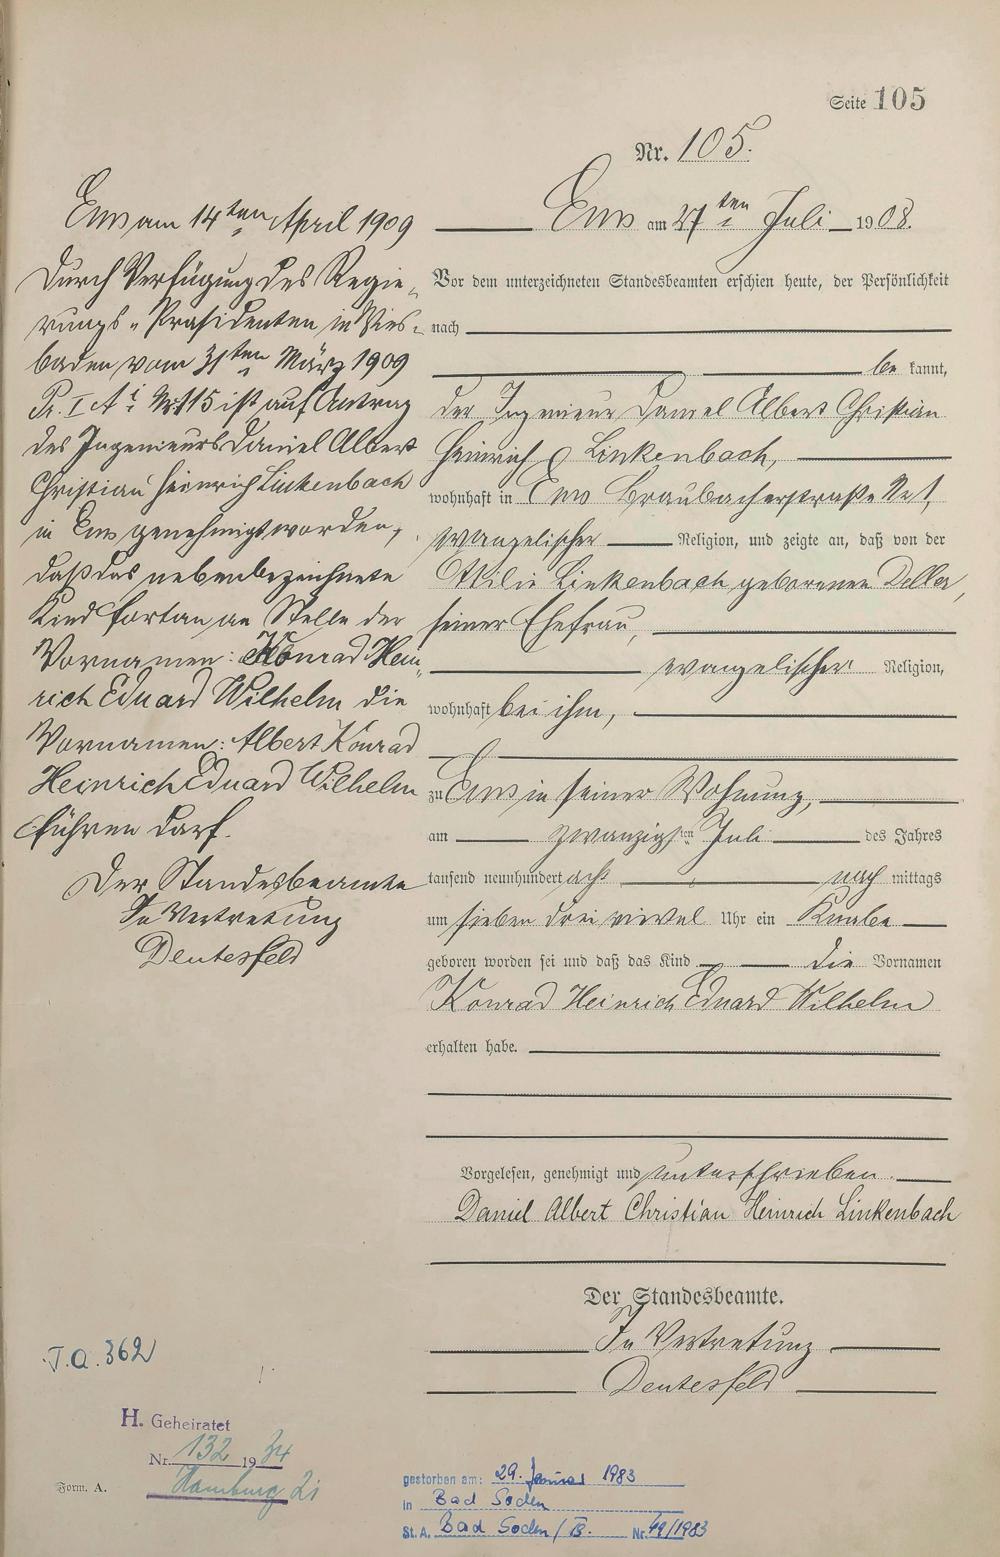 Seite 105
Nr. 105.
Ems am 27ten Juli 1908.
Vor dem unterzeichneten Standesbeamten erschien heute, der Persönlichkeit
nach
be kannt,
der Ingenieur Daniel Albert Christian
Heinrich Linkenbach,
wohnhaft in Ems Braubacherstraße No 1,
evangelischer Religion, und zeigte an, daß von der
Ottilie Linkenbach geborenen
seiner Ehefrau,
evangelischer Religion,
wohnhaft bei ihm,
zu Ems in seiner Wohnung,
am zwanzigsten Juli des Jahres
tausend neunhundert acht nach mittags
um sieben drei viertel Uhr ein Knabe
geboren worden sei und daß das Kind die Vornamen
Konrad Heinrich Eduard Wilhelm
erhalten habe.
Vorgelesen, genehmigt und unterschrieben.
Daniel Albert Christian Heinrich Linkenbach
Der Standesbeamte.
In Vertretung
Deutesfeld
Ems am 14ten April 1909
Durch Verfügung des Regie-
rungs-Präsidenten in Wies-
baden vom 31ten März 1909
Pr. I A ist auf Antrag
des Ingenieurs Daniel Albert
Christian Heinrich Linkenbach
in Ems genehmigt worden,
daß das nebenbezeichnete
Kind fortan an Stelle der
Vornamen: Konrad Hein-
rich Eduard Wilhelm die
Vornamen: Albert Konrad
Heinrich Eduard Wilhelm
führen darf.
Der Standesbeamte
In Vertretung
Deutesfeld
J.A. 362
H. Geheiratet
Nr. 132 1934
Hamburg
Form. A.
gestorben am: 29. Januar 1983
in Bad Soden
St. A. Bad Soden / Nr. 49/1983